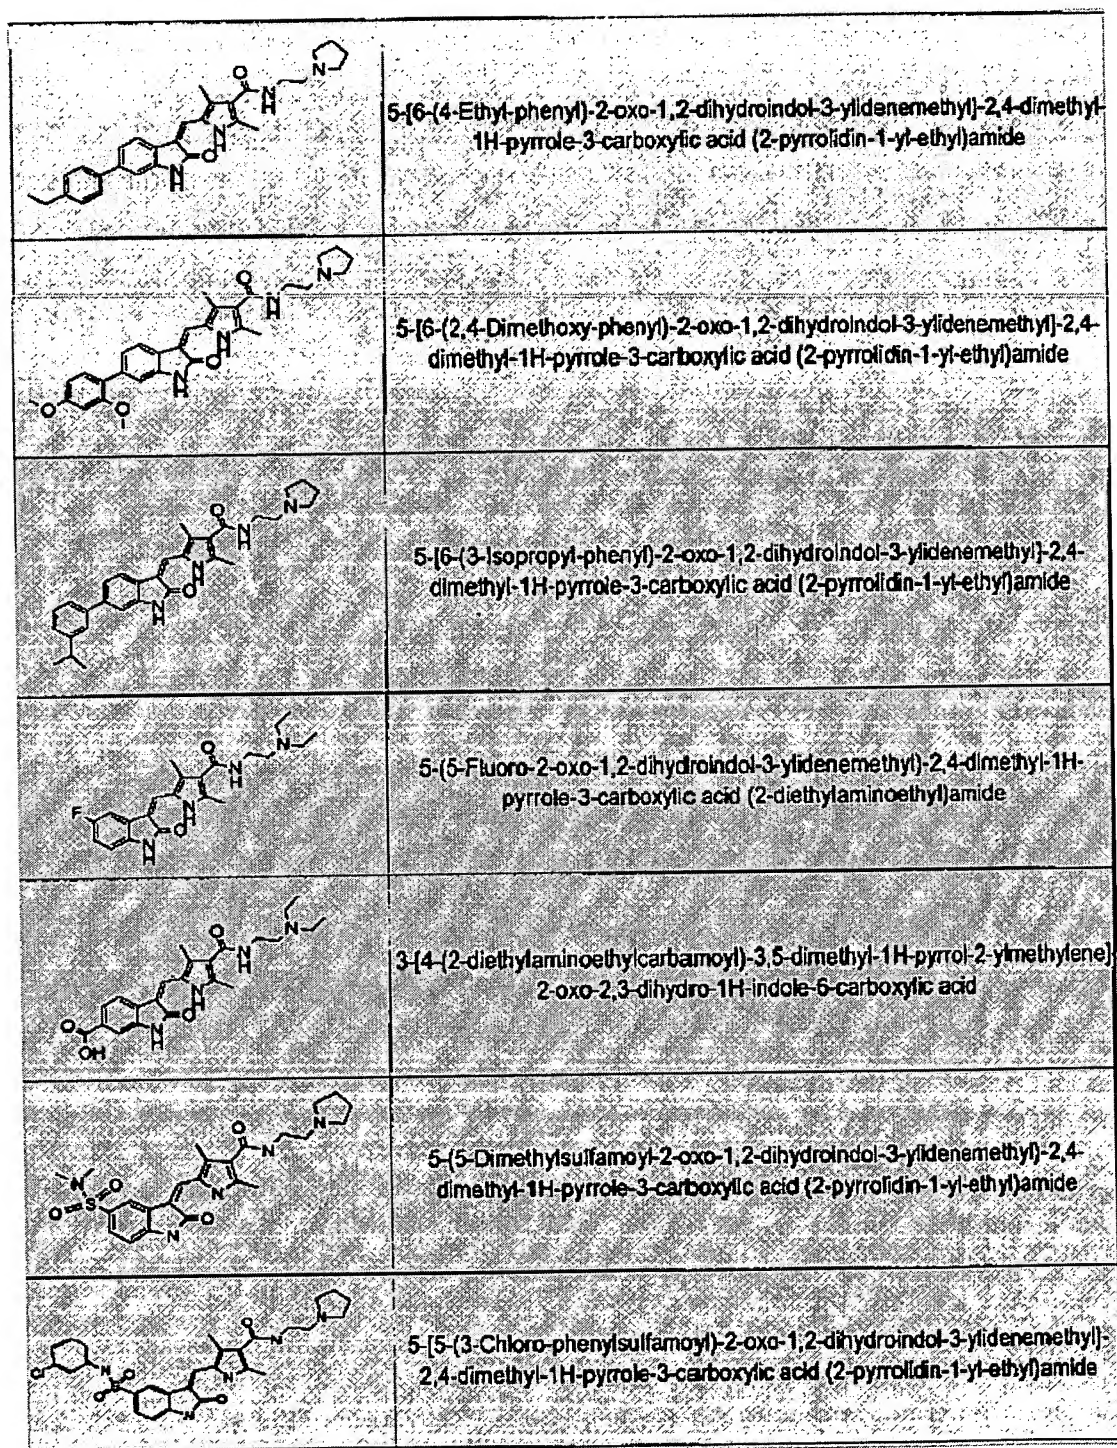 5-[6-(4-Ethyl-phenyl)-2-oxo-1,2-dihydroindol-3-ylidenemethyl]-2,4-dimethyl-
1H-pyrrole-3-carboxylic acid (2-pyrrolidin-1-yl-ethyl)amide
5-[6-(2,4-Dimethoxy-phenyl)-2-oxo-1,2-dihydroindol-3-ylidenemethyl]-2,4-
dimethyl-1H-pyrrole-3-carboxylic acid (2-pyrrolidin-1-yl-ethyl)amide
5-[6-(3-Isopropyl-phenyl)-2-oxo-1,2-dihydroindol-3-ylidenemethyl]-2,4-
dimethyl-1H-pyrrole-3-carboxylic acid (2-pyrrolidin-1-yl-ethyl)amide
5-(5-Fluoro-2-oxo-1,2-dihydroindol-3-ylidenemethyl)-2,4-dimethyl-1H-
pyrrole-3-carboxylic acid (2-diethylaminoethyl)amide
3-[4-(2-diethylaminoethylcarbamoyl)-3,5-dimethyl-1H-pyrrol-2-ylmethylene]
2-oxo-2,3-dihydro-1H-indole-6-carboxylic acid
5-(5-Dimethylsulfamoyl-2-oxo-1,2-dihydroindol-3-ylidenemethyl)-2,4-
dimethyl-1H-pyrrole-3-carboxylic acid (2-pyrrolidin-1-yl-ethyl)amide
5-[5-(3-Chloro-phenylsulfamoyl)-2-oxo-1,2-dihydroindol-3-ylidenemethyl]-
2,4-dimethyl-1H-pyrrole-3-carboxylic acid (2-pyrrolidin-1-yl-ethyl)amide